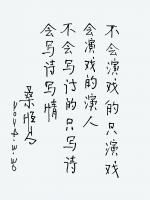 不会演戏的只演戏
会演戏的演人
不会写诗的只写诗
会写诗写情
桑恒昌